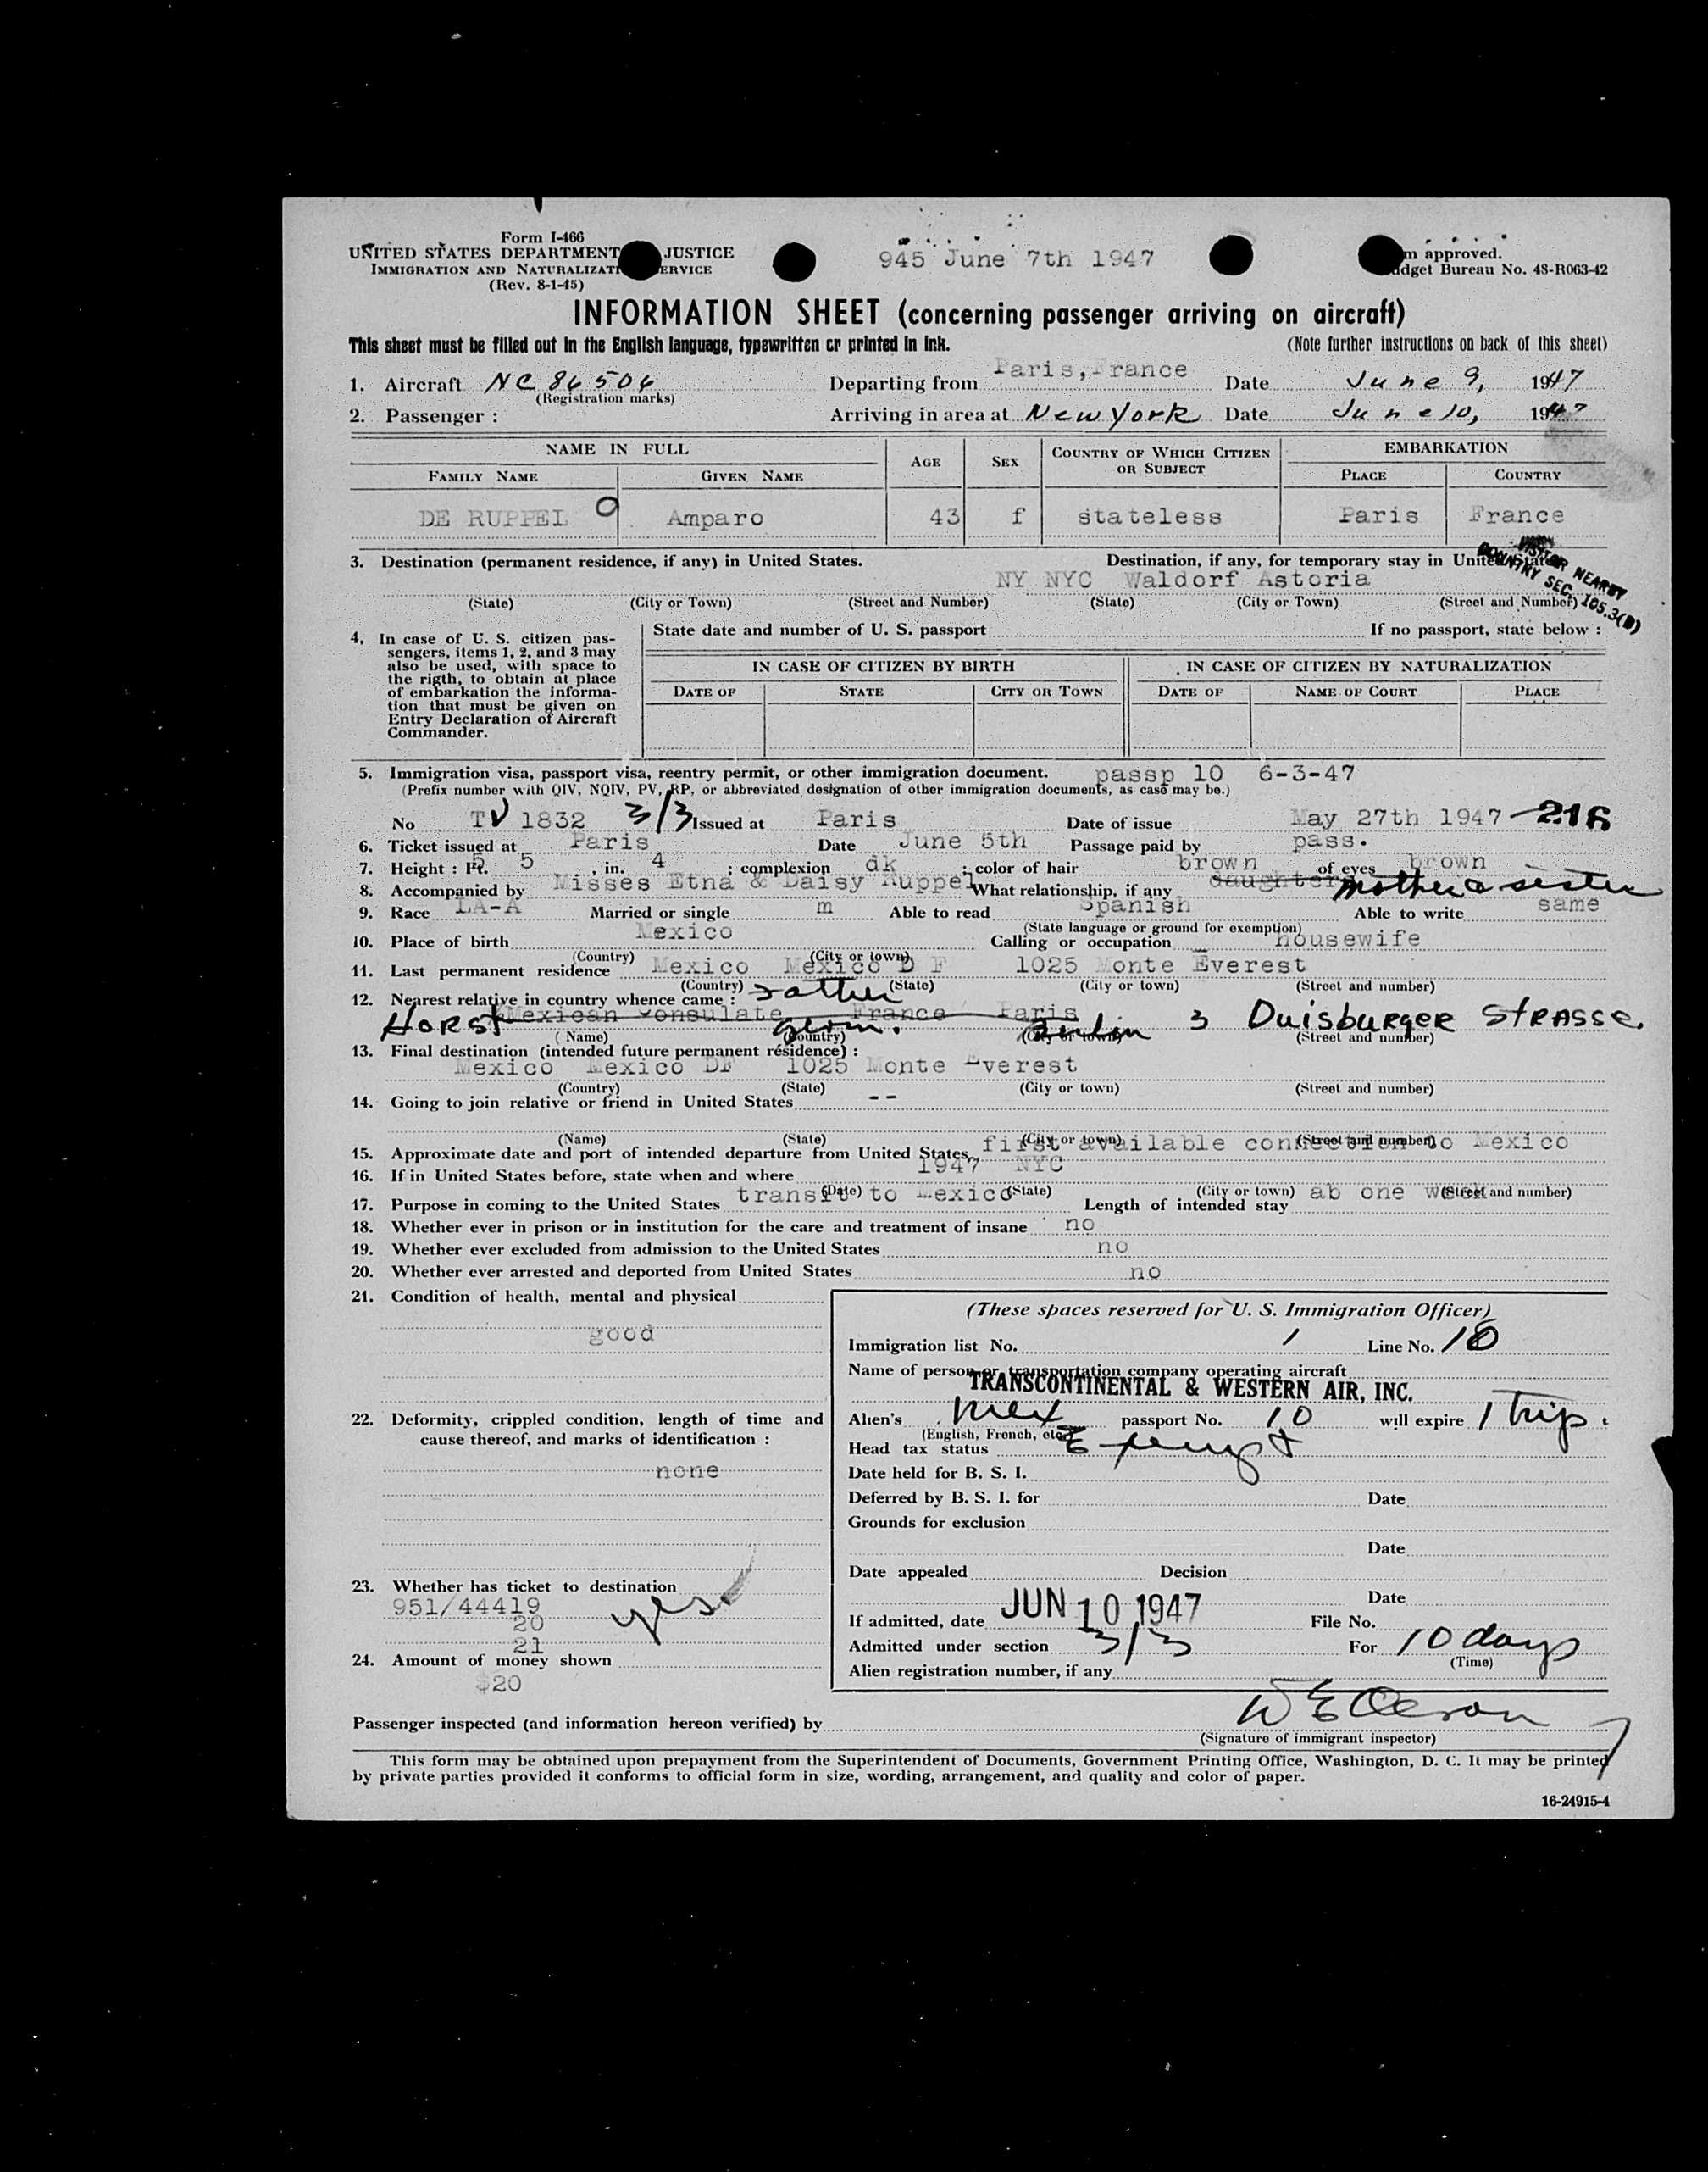 Form I-466
UNITED STATES DEPARTMENT JUSTICE
IMMIGRATION AND NATURALIZATI ERVICE
(Rev. 8-1-45)
945 June 7th 1947
m approved.
dget Bureau No. 48-R063-42
INFORMATION SHEET (concerning passenger arriving on aircraft)
This sheet must be filled out in the English language, typewritten or printed in ink. (Note further instructions on back of this sheet)
1. Aircraft NC 86506 Departing from Paris, France Date June 9, 1947
(Registration marks)
2. Passenger : Arriving in area at New York Date June 10, 1947
NAME IN FULL AGE SEX COUNTRY OF WHICH CITIZEN OR SUBJECT EMBARKATION
FAMILY NAME GIVEN NAME PLACE COUNTRY
DE RUPPEL O Amparo 43 f stateless Paris France
3. Destination (permanent residence, if any) in United States. Destination, if any, for temporary stay in United States
NY NYC Waldorf Astoria
(State) (City or Town) (Street and Number) (State) (City or Town) (Street and Number)
VISITOR NEARBY
COUNTRY SEC. 105.3(B)
4. In case of U. S. citizen pas-
sengers, items 1, 2, and 3 may
also be used, with space to
the rigth, to obtain at place
of embarkation the informa-
tion that must be given on
Entry Declaration of Aircraft
Commander.
State date and number of U. S. passport If no passport, state below :
IN CASE OF CITIZEN BY BIRTH IN CASE OF CITIZEN BY NATURALIZATION
DATE OF STATE CITY OR TOWN DATE OF NAME OF COURT PLACE
5. Immigration visa, passport visa, reentry permit, or other immigration document. passp 10 6-3-47
(Prefix number with QIV, NQIV, PV, RP, or abbreviated designation of other immigration documents, as case may be.)
No TV 1832 3/3 Issued at Paris Date of issue May 27th 1947 -216
6. Ticket issued at Paris Date June 5th Passage paid by pass.
7. Height : Ft. 5 5 , in. 4 ; complexion dk ; color of hair brown of eyes brown
8. Accompanied by Misses Etna & Daisy Ruppel What relationship, if any daughters mother & sister
9. Race LA-A Married or single m Able to read Spanish Able to write same
(State language or ground for exemption)
10. Place of birth Mexico Calling or occupation housewife
(Country) (City or town)
11. Last permanent residence Mexico Mexico D F 1025 Monte Everest
(Country) (State) (City or town) (Street and number)
12. Nearest relative in country whence came : Father
Mexican Consulate France Paris
HORST Germ. Berlin 3 Duisburger Strasse.
(Name) (Country) (City or town) (Street and number)
13. Final destination (intended future permanent résidence) :
Mexico Mexico DF 1025 Monte Everest
(Country) (State) (City or town) (Street and number)
14. Going to join relative or friend in United States --
(Name) (State) (City or town) (Street and number)
15. Approximate date and port of intended departure from United States first available connection to Mexico
16. If in United States before, state when and where 1947 NYC
(Date) (State) (City or town) (Street and number)
17. Purpose in coming to the United States transit to Mexico Length of intended stay ab one week
18. Whether ever in prison or in institution for the care and treatment of insane no
19. Whether ever excluded from admission to the United States no
20. Whether ever arrested and deported from United States no
21. Condition of health, mental and physical
good
22. Deformity, crippled condition, length of time and
cause thereof, and marks of identification :
none
23. Whether has ticket to destination
951/44419 yes
20
21
24. Amount of money shown
$20
(These spaces reserved for U. S. Immigration Officer)
Immigration list No. 1 Line No. 10
Name of person or transportation company operating aircraft
TRANSCONTINENTAL & WESTERN AIR, INC.
Alien's Mex passport No. 10 will expire 1 trip
(English, French, etc.)
Head tax status Exempt
Date held for B. S. I.
Deferred by B. S. I. for Date
Grounds for exclusion
Date
Date appealed Decision
Date
If admitted, date JUN 10 1947 File No.
Admitted under section 3/3 For 10 days
(Time)
Alien registration number, if any
Passenger inspected (and information hereon verified) by W E Oleson
(Signature of immigrant inspector)
This form may be obtained upon prepayment from the Superintendent of Documents, Government Printing Office, Washington, D. C. It may be printed
by private parties provided it conforms to official form in size, wording, arrangement, and quality and color of paper.
16-24915-4